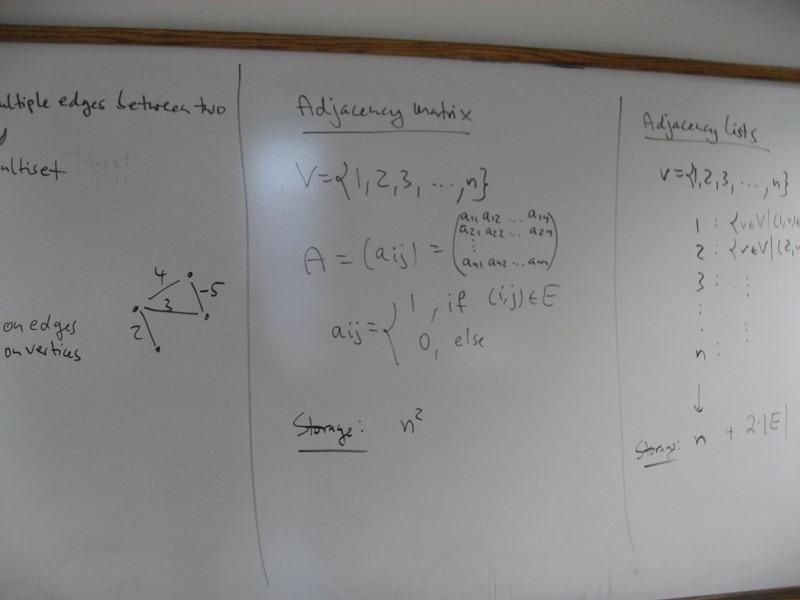 ultiple edges between two
y
ultiset
4
-5
3
2
on edges
on vertices
Adjacency matrix
V={1,2,3, ...,n}
A = (aij) = (a11 a12 ... a1n
a21 a22 ... a2n
⋮
an1 an2 ... ann)
aij = { 1, if (i,j)∈E
0, else
Storage: n²
Adjacency lists
V={1,2,3, ...,n}
1 : {v∈V|(1,v)∈
2 : {v∈V|(2,v
3 : ⋮
⋮
n : ⋮
↓
Storage: n + 2·|E|